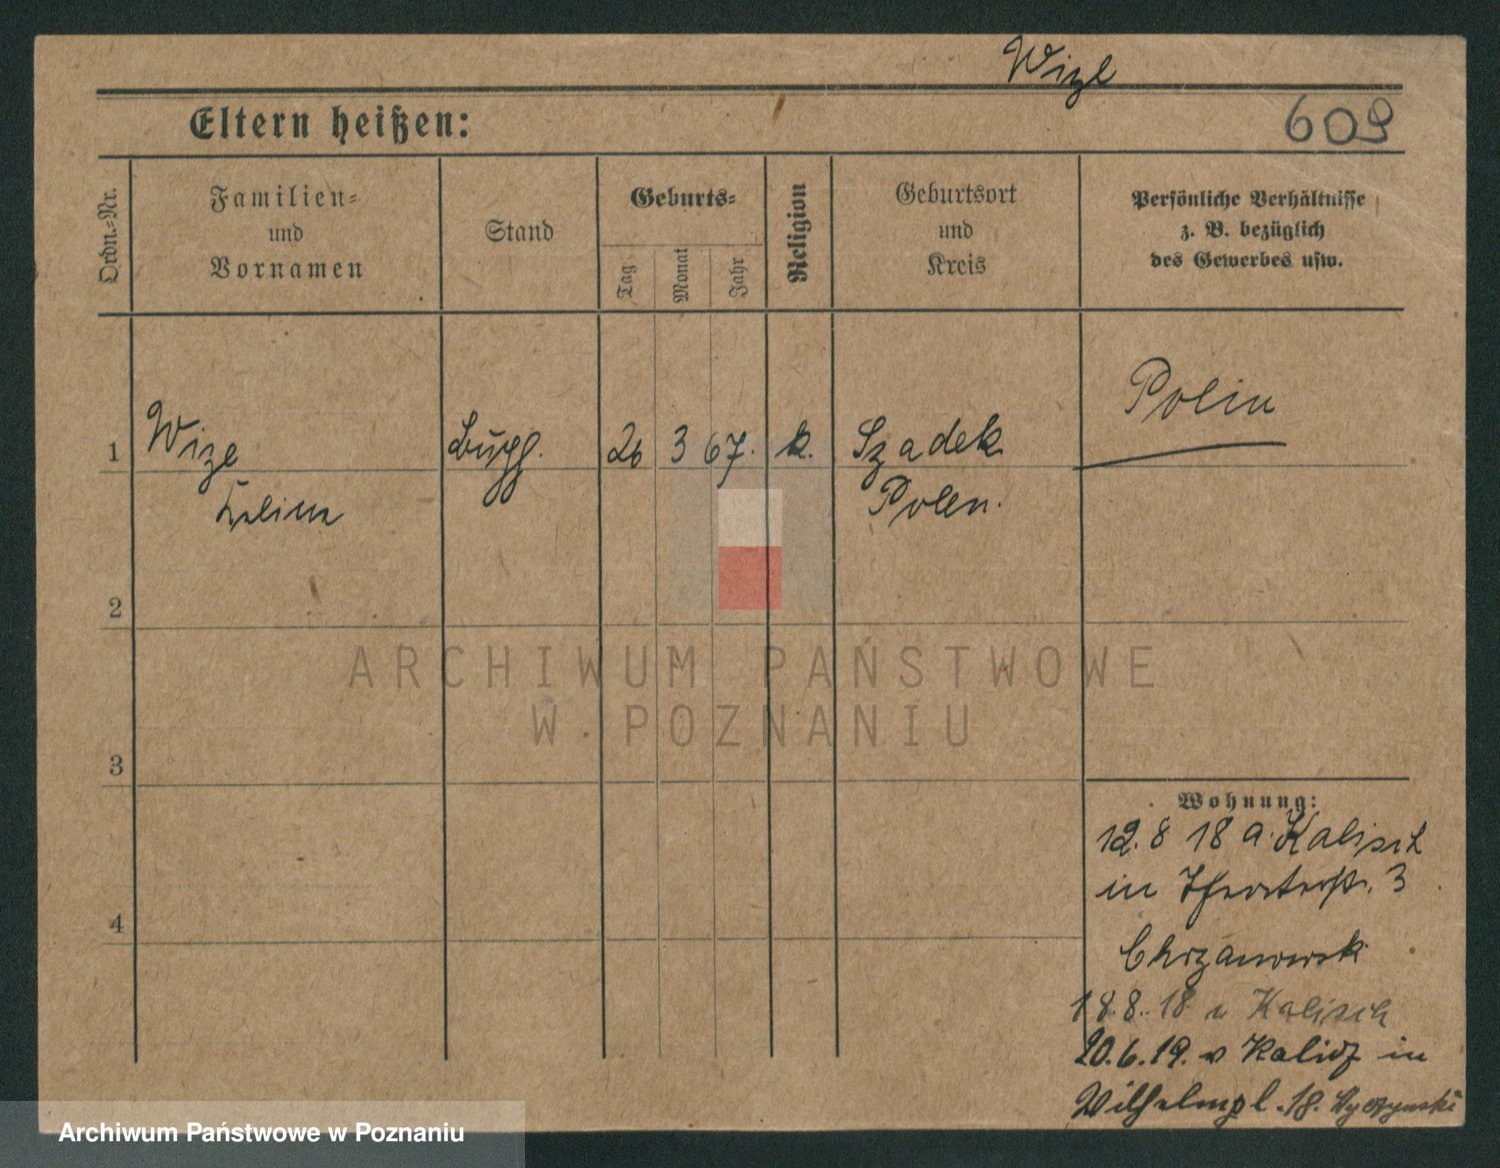 Wize
609
Eltern heißen:
Ordn.-Nr.
Familien-
und
Vornamen
Stand
Geburts-
Tag
Monat
Jahr
Religion
Geburtsort
und
Kreis
Persönliche Verhältnisse
z. B. bezüglich
des Gewerbes usw.
1
Wize
26 3 67. k.
Szadek
Polen.
Polin
2
3
4
Wohnung:
12. 8 18 a. Kalisch
in 3
Chrzanowski
18.8.18 n Kalisch
20.6.19. v Kalisz in
Wilhelmpl. 18. Wyczynski
ARCHIWUM PAŃSTWOWE
W POZNANIU
Archiwum Państwowe w Poznaniu